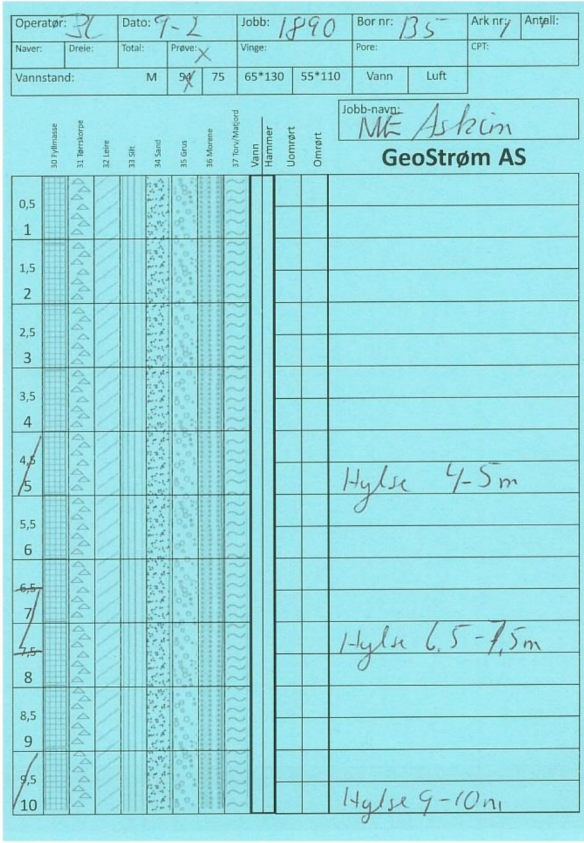 Operatør: BL Dato: 9-2 Jobb: 1890 Bor nr: B5 Ark nr: 1 Antall:
Naver: Dreie: Total: Prøve: X Vinge: Pore: CPT:
Vannstand: M 54 75 65*130 55*110 Vann Luft
Jobb-navn:
Askim
30 Fyllmasse
31 Tørrskorpe
32 Leire
33 Silt
34 Sand
35 Grus
36 Morene
37 Torv/Matjord
Vann
Hammer
Uomrørt
Omrørt
GeoStrøm AS
0,5
1
1,5
2
2,5
3
3,5
4
4,5
Hylse 4-5m
5
5,5
6
6,5
7
Hylse 6,5-7,5m
7,5
8
8,5
9
9,5
Hylse 9-10m
10